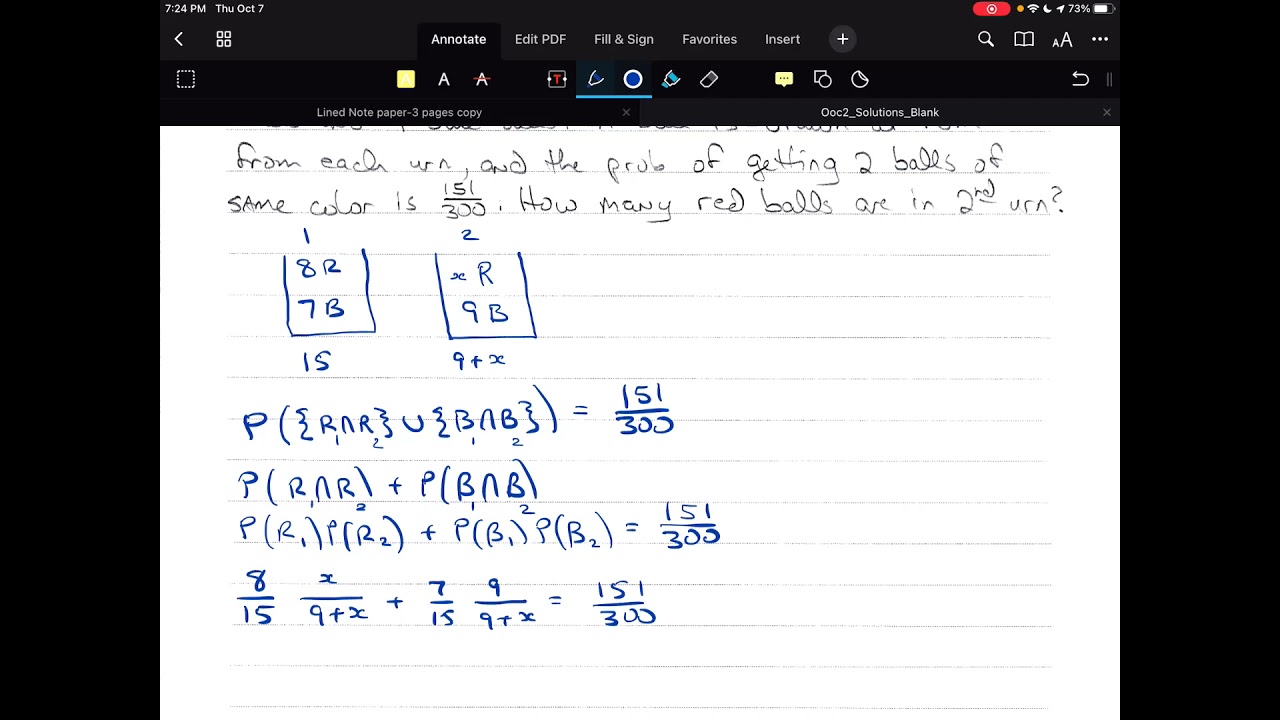 7:24 PM Thu Oct 7
73%
Annotate Edit PDF Fill & Sign Favorites Insert
A A T AA
Lined Note paper-3 pages copy
Ooc2_Solutions_Blank
from each urn, and the prob of getting 2 balls of
SAME color is 151/300. How many red balls are in 2nd urn?
1 2
8R x R
7B 9B
15 9+x
P({R₁∩R₂}∪{B₁∩B₂}) = 151/300
P(R₁∩R₂) + P(B₁∩B₂)
P(R₁)P(R₂) + P(B₁)P(B₂) = 151/300
8/15 x/9+x + 7/15 9/9+x = 151/300